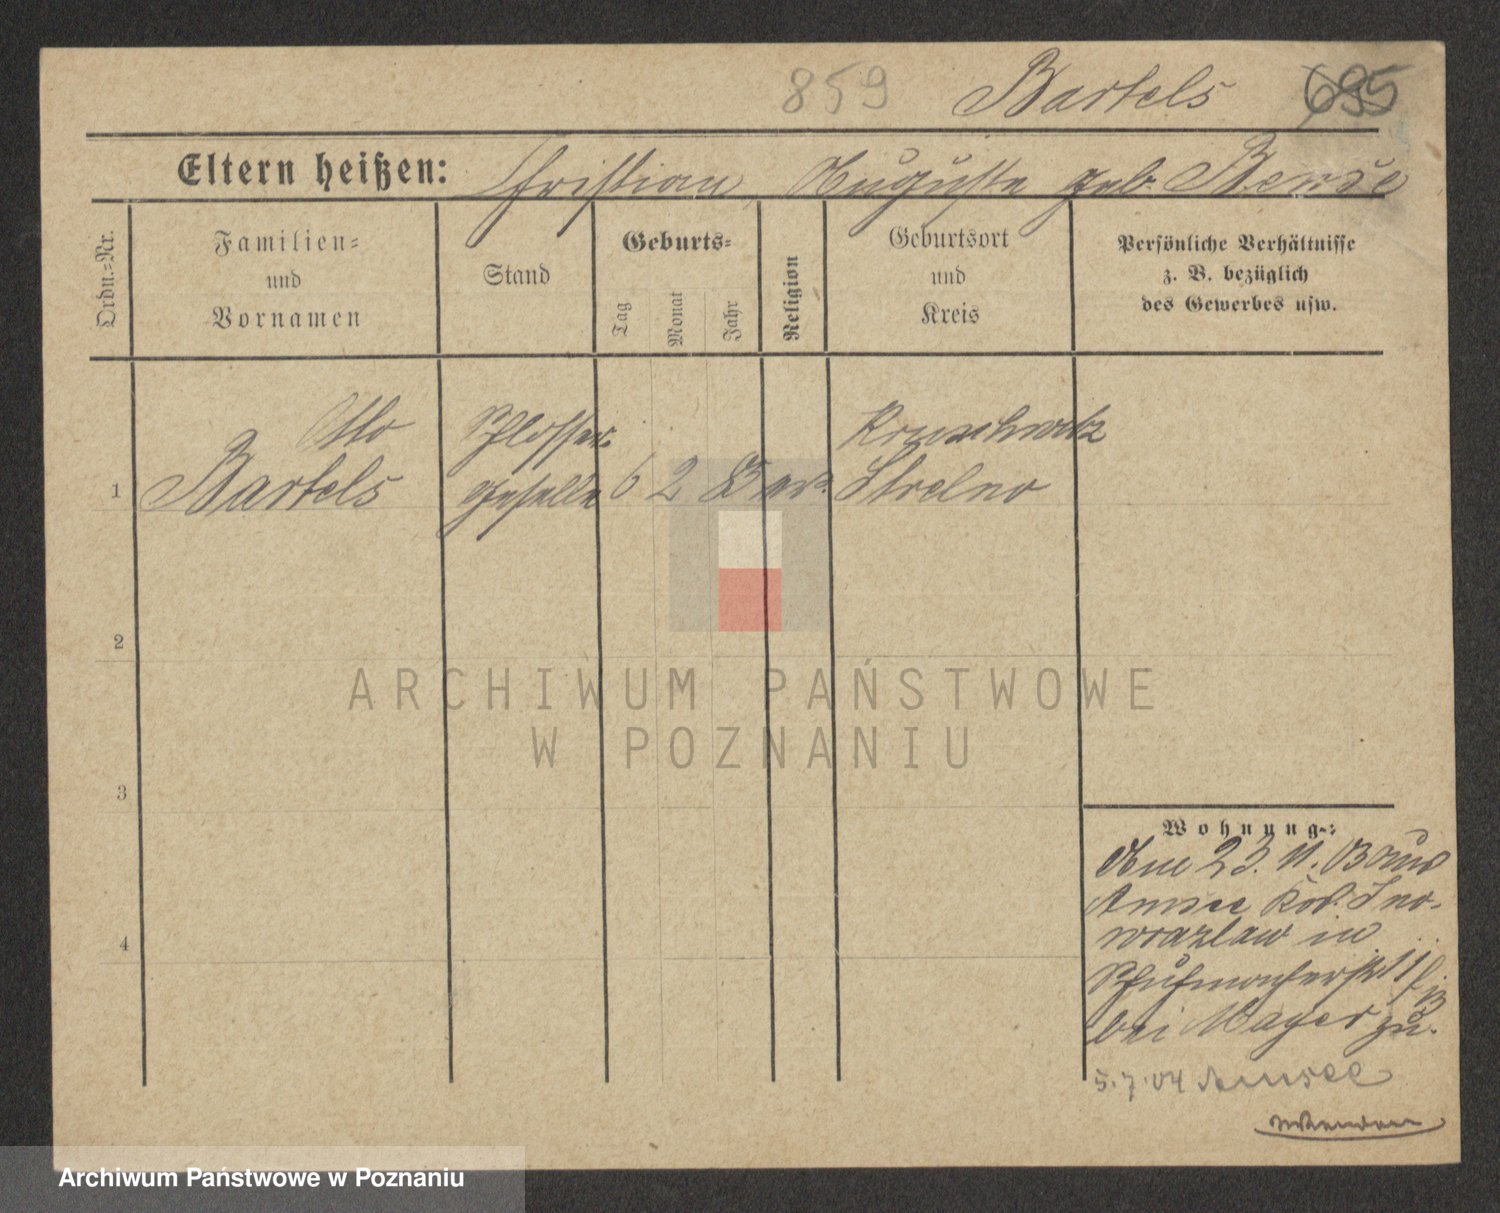 859 Bartels 695
Eltern heißen: Christian, Auguste geb. Bense
Ordn.=Nr.
Familien=
und
Vornamen
Stand
Geburts=
Tag
Monat
Jahr
Religion
Geburtsort
und
Kreis
Persönliche Verhältnisse
z. B. bezüglich
des Gewerbes usw.
1
Otto
Bartels
Schlosser
geselle
6 2 83
Kruschwitz
Strelno
2
3
4
Wohnung:
Am 23. 11. 03 aus
Amsee Kr. Ino-
wrazlaw in
Schuhmacherstr. 11
bei Mayer zu.
5.7.04 Amsee
ARCHIWUM PAŃSTWOWE
W POZNANIU
Archiwum Państwowe w Poznaniu